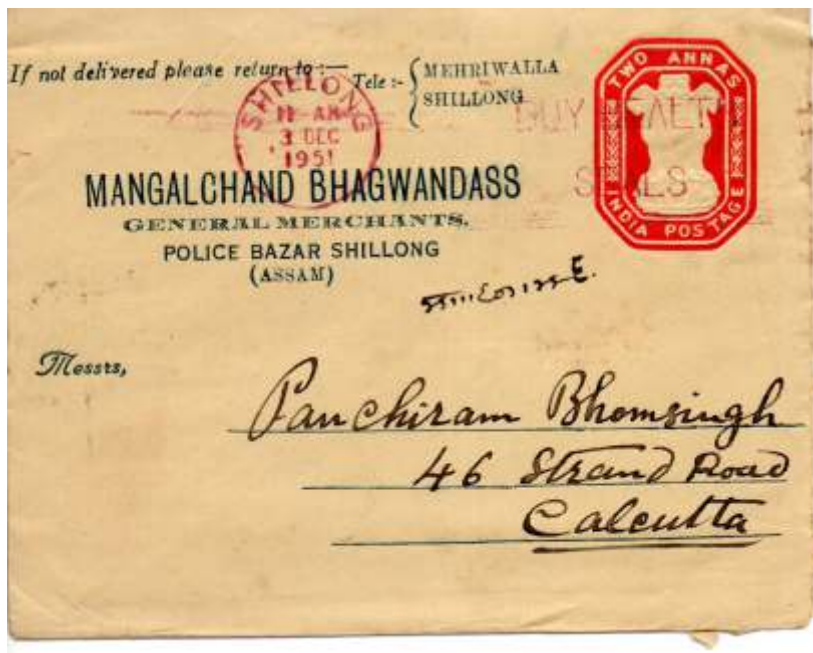 If not delivered please return to :—
Tele :- { MEHRIWALLA
SHILLONG
TWO ANNAS
INDIA POSTAGE
SHILLONG
11 AM
3 DEC
1951
BUY HEALTH
SEALS
MANGALCHAND BHAGWANDASS
GENERAL MERCHANTS,
POLICE BAZAR SHILLONG
(ASSAM)
Messrs,
Panchiram Bhomsingh
46 Strand Road
Calcutta